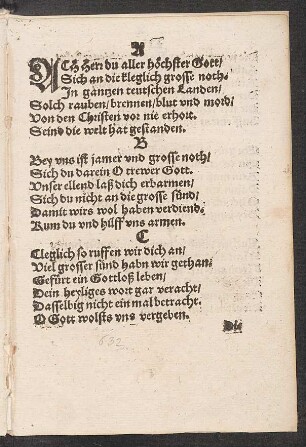 A
ACH Herr du aller höchster Gott/
Sich an die kleglich grosse noth/
In gantzen teutschen Landen/
Solch rauben/ brennen/ blut vnd mord/
Von den Christen vor nie erhort.
Seind die welt hat gestanden.
B
Bey vns ist jamer vnd grosse noth/
Sich du darein O trewer Gott.
Vnser ellend laß dich erbarmen/
Sich du nicht an die grosse sünd/
Damit wirs wol haben verdiend/
Kum du vnd hilff vns armen.
C
Cleglich so ruffen wir dich an/
Viel grosser sünd habn wir gethan/
Gefürt ein Gottloß leben/
Dein heyliges wort gar veracht/
Dasselbig nicht ein mal betracht.
O Gott wolsts vns vergeben.
Die
632